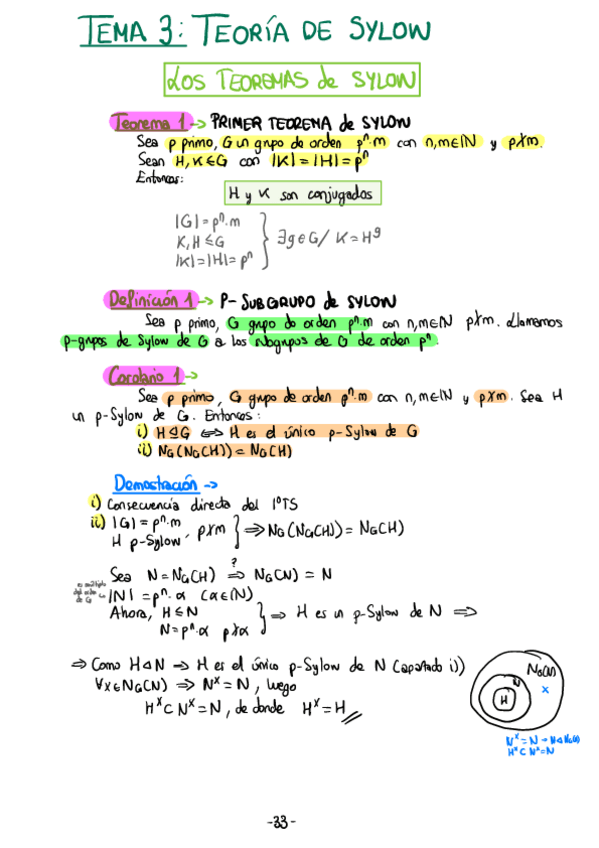 TEMA 3: TEORÍA DE SYLOW
LOS TEOREMAS de SYLOW
Teorema 1 → PRIMER TEOREMA de SYLOW
Sea p primo, G un grupo de orden pⁿ·m con n,m∈ℕ y p∤m.
Sean H,K≤G con |K|=|H|=pⁿ
Entonces:
H y K son conjugados
|G|=pⁿ·m
K,H≤G
|K|=|H|=pⁿ
} ∃g∈G/ K=Hᵍ
Definición 1 → P-SUBGRUPO de SYLOW
Sea p primo, G grupo de orden pⁿ·m con n,m∈ℕ p∤m. Llamamos
p-grupos de Sylow de G a los subgrupos de G de orden pⁿ.
Corolario 1 →
Sea p primo, G grupo de orden pⁿ·m con n,m∈ℕ y p∤m. Sea H
un p-Sylow de G. Entonces:
i) H⊴G ⟺ H es el único p-Sylow de G
ii) N_G(N_G(H))=N_G(H)
Demostración →
i) Consecuencia directa del 1ºTS
ii) |G|=pⁿ·m , p∤m
H p-Sylow
} ⟹ N_G(N_G(H))=N_G(H)
?
Sea N=N_G(H) ⟹ N_G(N)=N
es múltiplo del orden de G
|N|=pⁿ·α (α∈ℕ)
Ahora, H≤N
N=pⁿ·α p∤α
} ⟹ H es un p-Sylow de N ⟹
⟹ Como H⊲N → H es el único p-Sylow de N (apartado i))
∀x∈N_G(N) ⟹ Nˣ=N, luego
Hˣ⊂Nˣ=N, de donde Hˣ=H
N_G(N)
N
H
x
Nˣ=N → N⊲N_G(N)
Hˣ⊂Nˣ=N
-33-